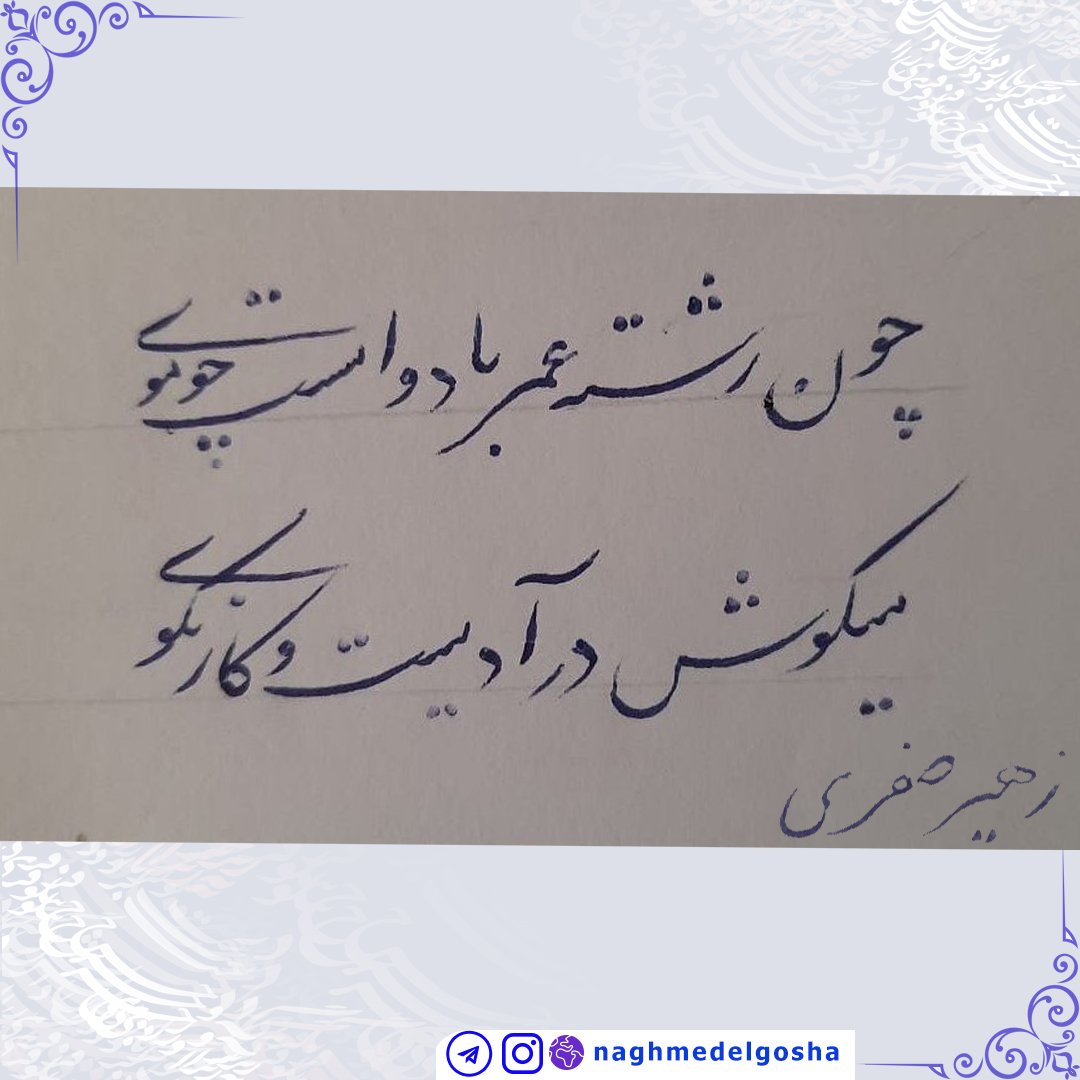 چون رشته عمر با دو است چو موی
میکوش در آدمیت و کار نکوی
زهیر صفری
naghmedelgosha